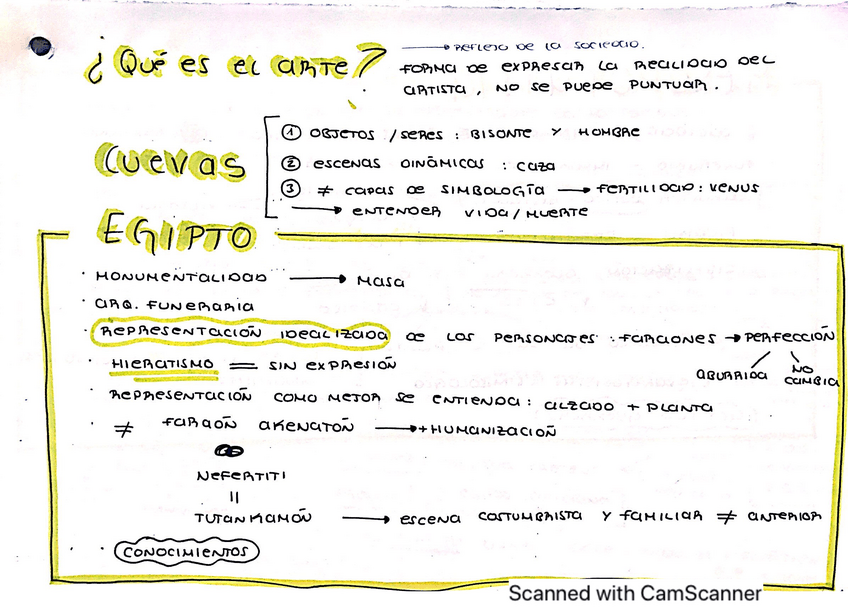 ¿Qué es el arte?
→ reflejo de la sociedad.
forma de expresar la realidad del
artista, no se puede puntuar.
Cuevas
① objetos / seres : bisonte y hombre
② escenas dinámicas : caza
③ ≠ capas de simbología → fertilidad : venus
→ entender vida / muerte
EGIPTO
· monumentalidad → masa
· arq. funeraria
· representación idealizada de los personajes : faraones → perfección
aburrida no cambia
· hieratismo = sin expresión
· representación como mejor se entienda : alzado + planta
· ≠ faraón akenatón → + humanización
nefertiti
=
tutankamón → escena costumbrista y familiar ≠ anterior
· conocimientos
Scanned with CamScanner